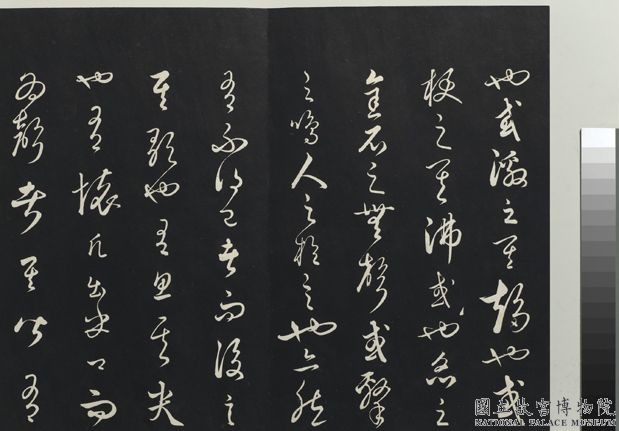 也或激之其趨也或
梗之其沸或也炙之
金石之無聲或擊
之鳴人之於言也亦然
有不得已者而後言
其歌也有思其哭
也有懷凡出乎口而
為聲者其皆有
國立故宮博物院
NATIONAL PALACE MUSEUM